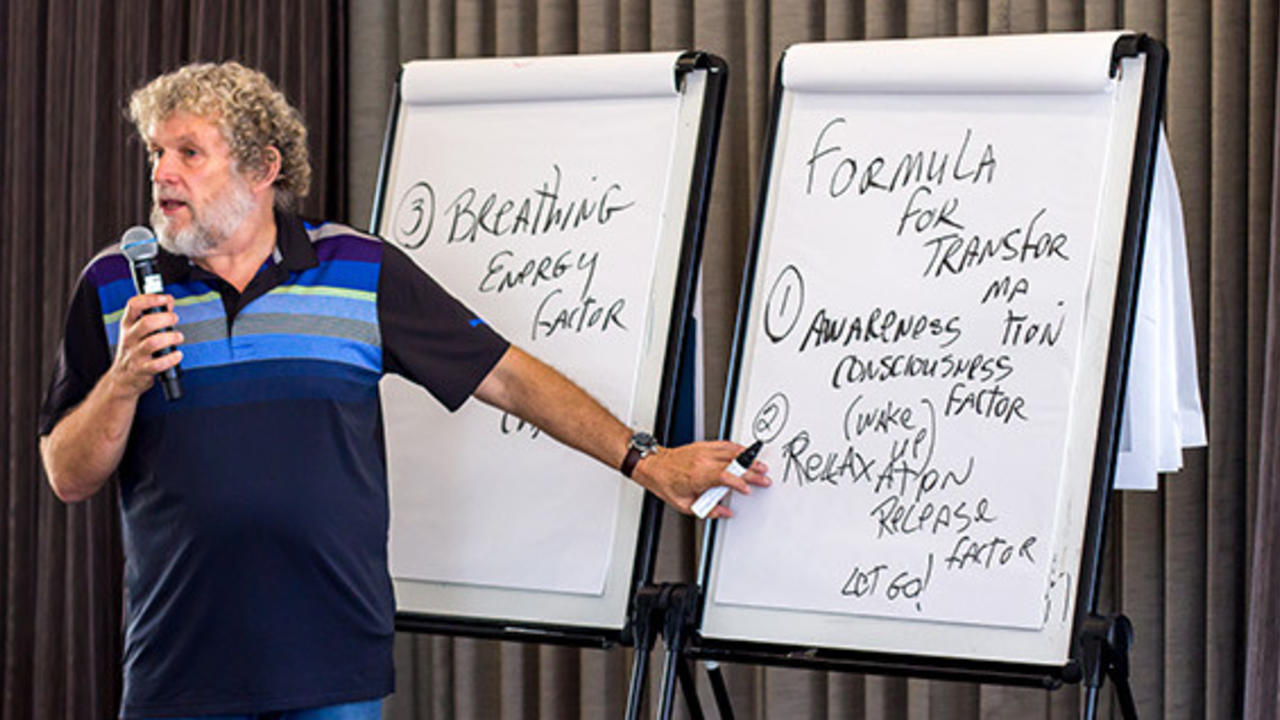 ③ BREATHING
ENERGY
FACTOR
FORMULA
FOR
TRANSFOR
MA
TION
①
AWARENESS
CONSCIOUSNESS
FACTOR
(WAKE
UP)
②
RELAXATION
RELEASE
FACTOR
LET GO!